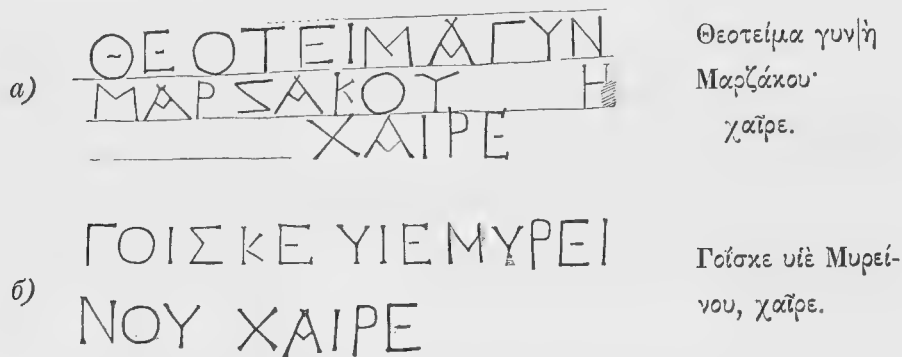 а)
ΘΕΟΤΕΙΜΑΓΥΝ
ΜΑΡΖΑΚΟΥ Η
ΧΑΙΡΕ
Θεοτείμα γυν|ὴ
Μαρζάκου·
χαῖρε.
б)
ΓΟΙΣΚΕ ΥΙΕΜΥΡΕΙ
ΝΟΥ ΧΑΙΡΕ
Γοΐσκε υἱὲ Μυρεί-
νου, χαῖρε.